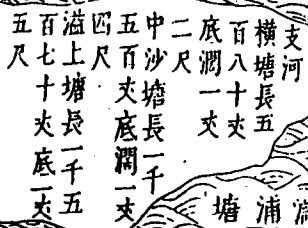 支河
橫塘長五
百八十丈
底濶一丈
二尺
中沙塘長一千
五百丈底濶一丈
四尺
溢上塘長一千五
百七十丈底一丈
五尺
浦塘